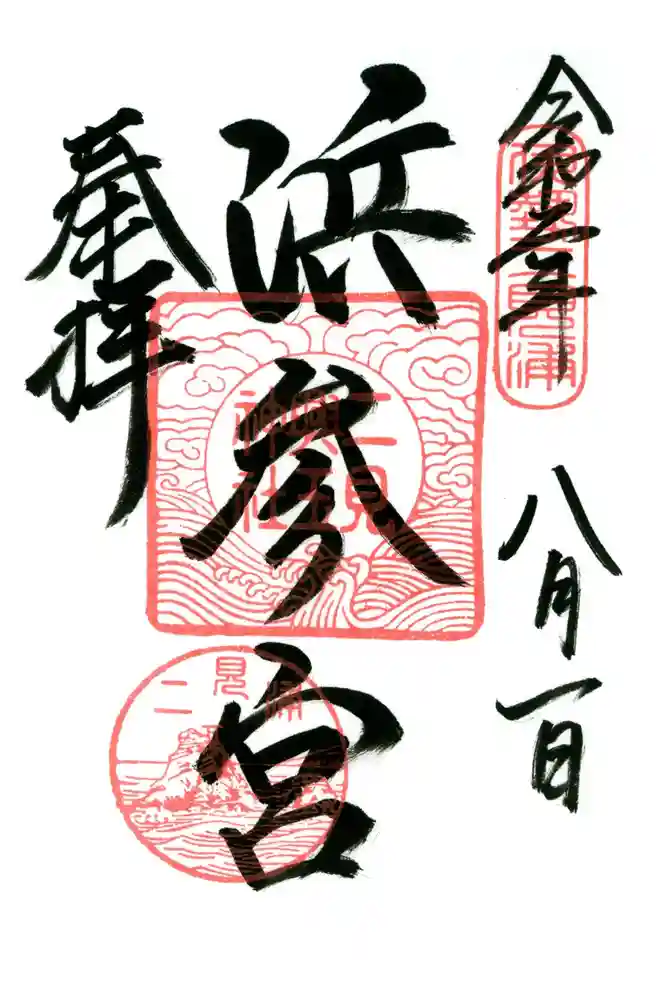 令和二年 八月一日
伊勢二見浦
浜参宮
二見
興玉
神社
二見浦
奉拝